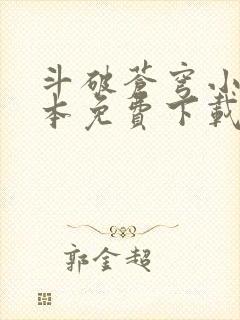 斗破苍穹小
本免費下載
郭金超